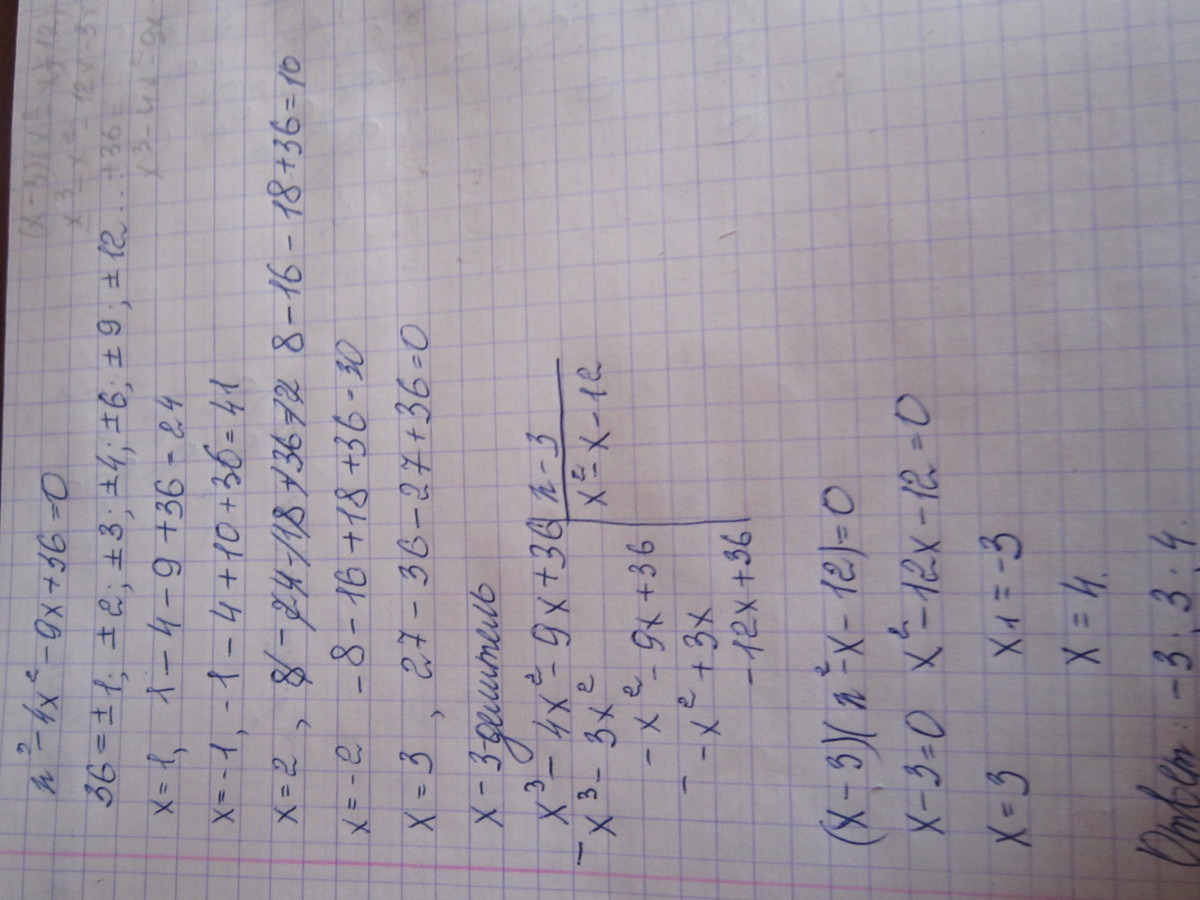 x³-4x²-9x+36=0
36=±1; ±2; ±3; ±4; ±6; ±9; ±12...+36=
x=1, 1-4-9+36=24
x=-1, -1-4+10+36=41
x=2, 8-24-18+36=12 8-16-18+36=10
x=-2 -8-16+18+36=30
x=3, 27-36-27+36=0
x-3делитель
x³-4x²-9x+36 x-3
-x³-3x² x²-x-12
-x²-9x+36
- -x²+3x
-12x+36
(x-3)(x²-x-12)=0
x-3=0 x²-12x-12=0
x=3 x1=-3
x=4.
Ответ: -3; 3; 4.
(x-3)(x²-x-12)
x³-x²-12x-3x
x³-4x²-9x